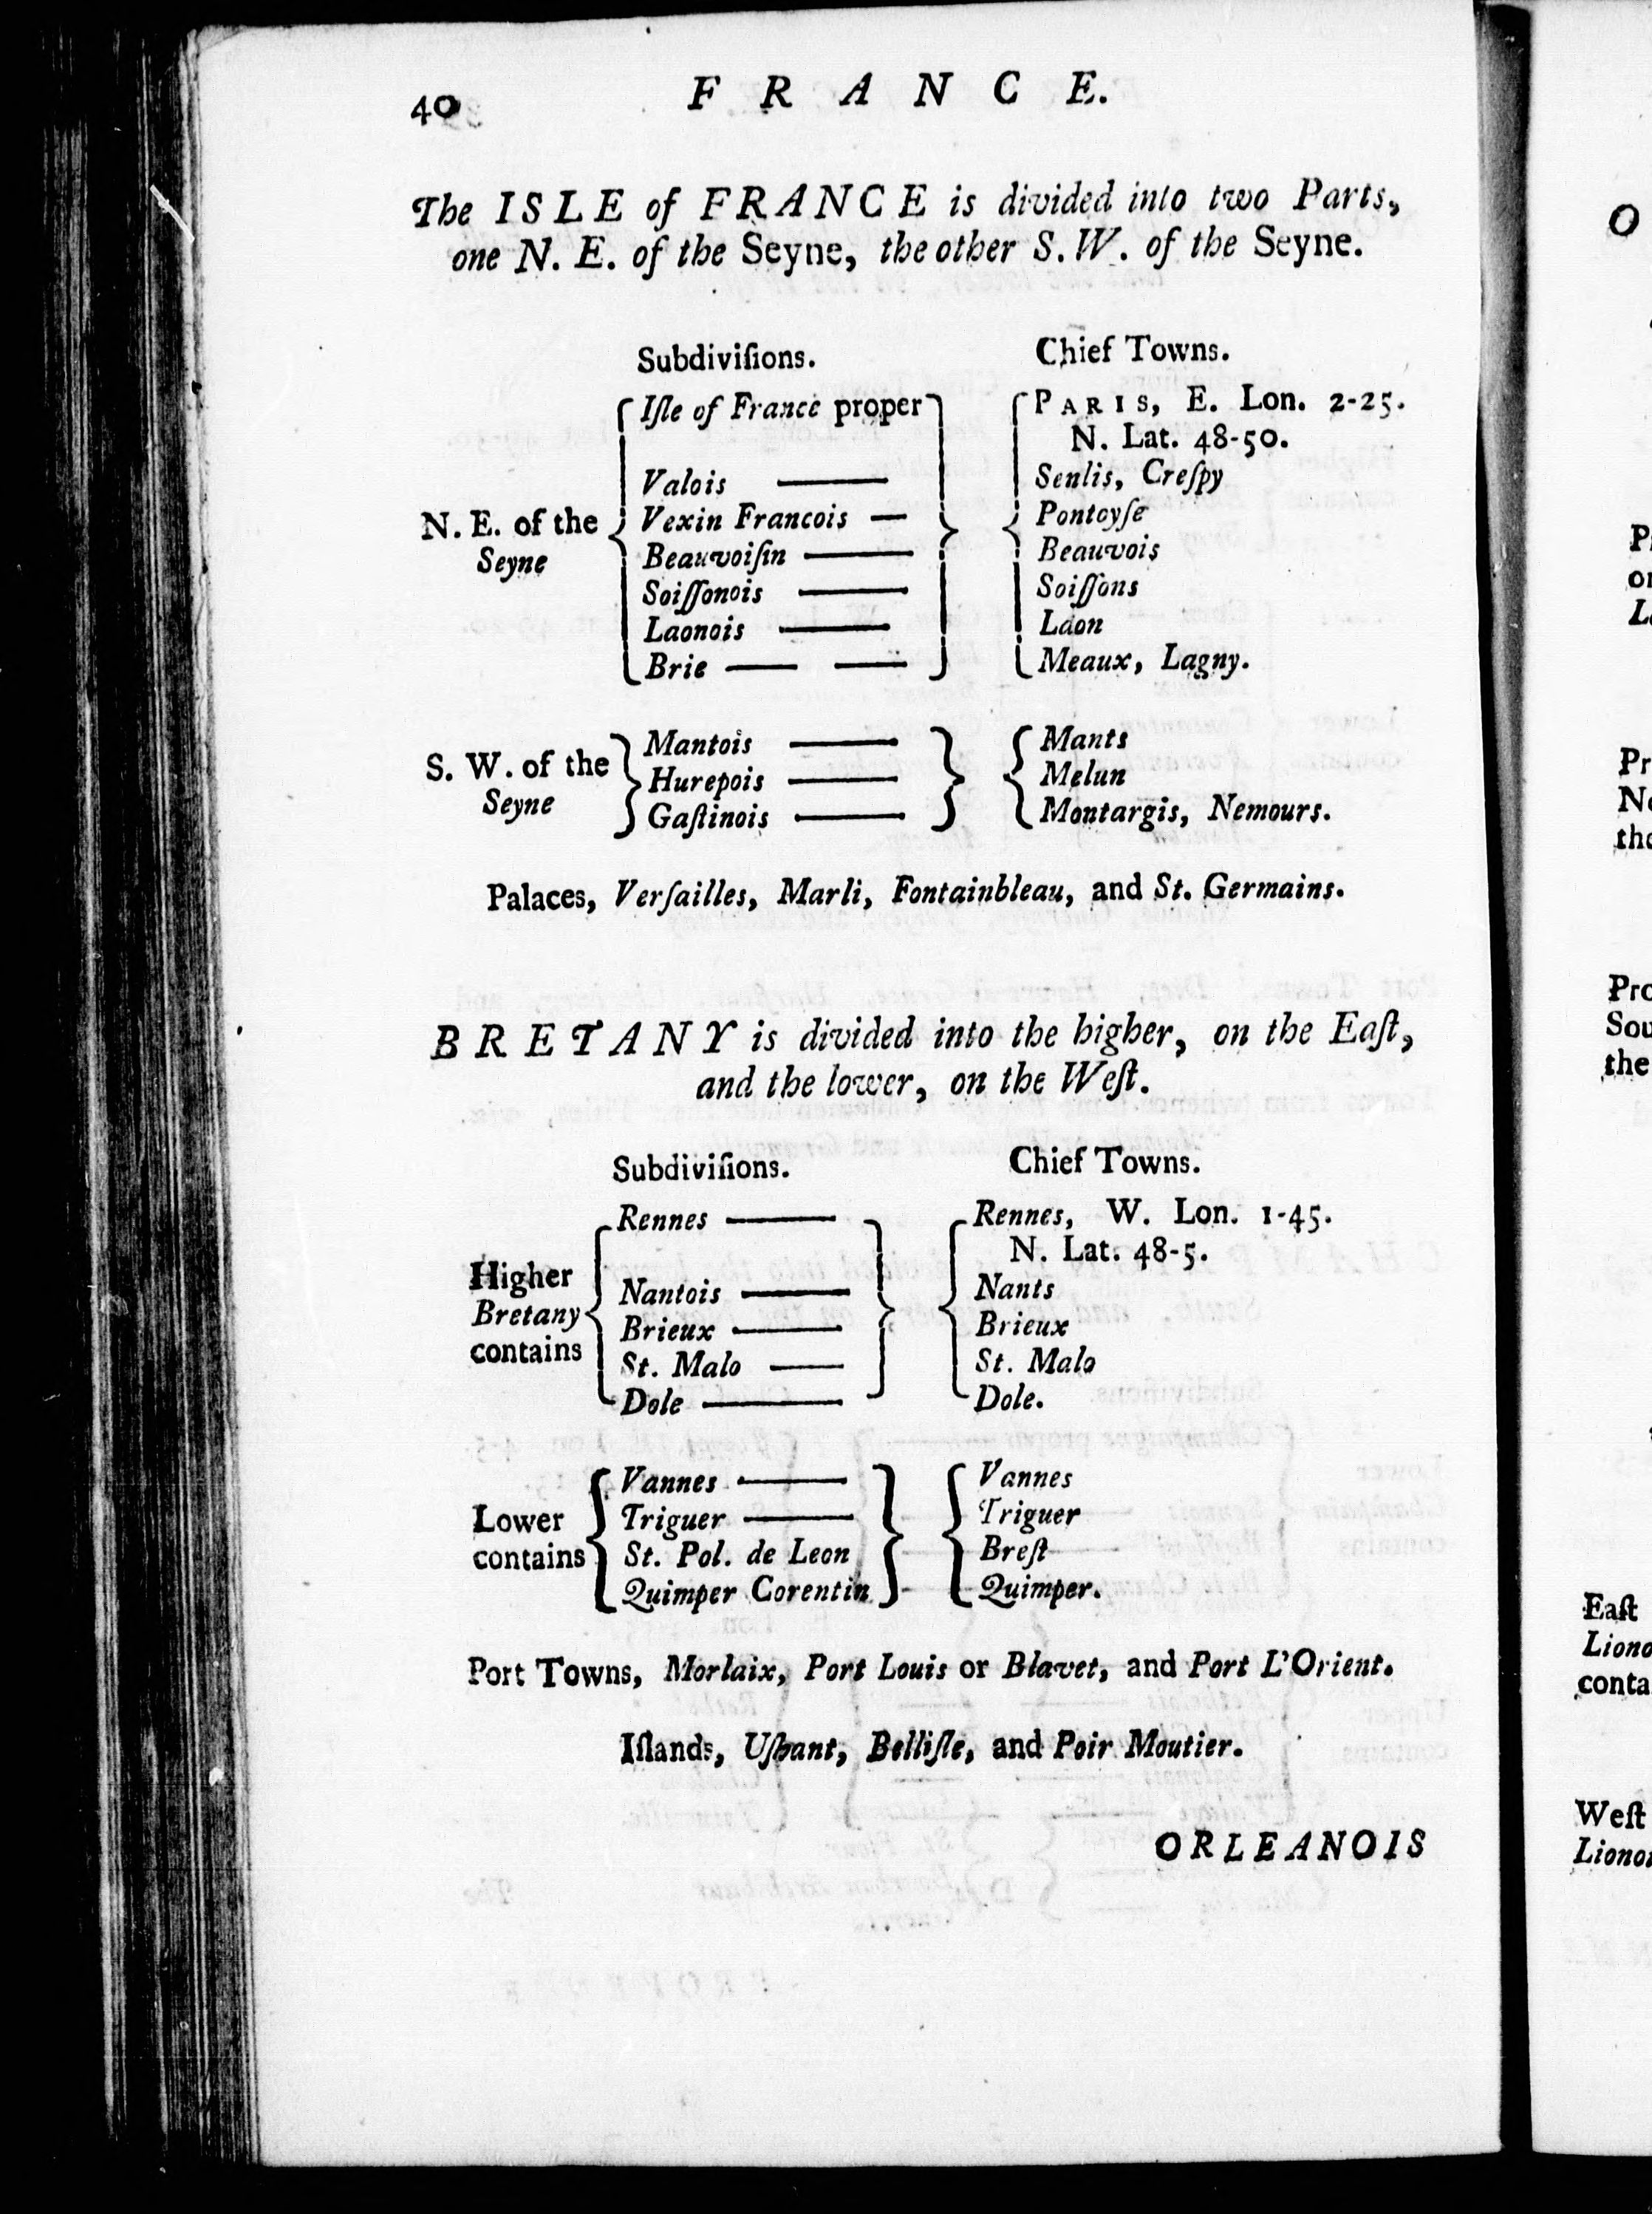 40 F R A N C E.
The ISLE of FRANCE is divided into two Parts,
one N. E. of the Seyne, the other S. W. of the Seyne.
Subdiviſions. Chief Towns.
Iſle of France proper PARIS, E. Lon. 2-25.
N. Lat. 48-50.
Valois —— Senlis, Creſpy
N. E. of the Vexin Francois — Pontoyſe
Seyne Beauvoiſin —— Beauvois
Soiſſonois —— Soiſſons
Laonois —— Laon
Brie — — Meaux, Lagny.
Mantois —— Mants
S. W. of the Hurepois —— Melun
Seyne Gaſtinois —— Montargis, Nemours.
Palaces, Verſailles, Marli, Fontainbleau, and St. Germains.
BRETANY is divided into the higher, on the Eaſt,
and the lower, on the Weſt.
Subdiviſions. Chief Towns.
Rennes —— Rennes, W. Lon. 1-45.
N. Lat. 48-5.
Higher Nantois —— Nants
Bretany Brieux —— Brieux
contains St. Malo — St. Malo
Dole —— Dole.
Vannes —— Vannes
Lower Triguer —— Triguer
contains St. Pol. de Leon Breſt
Quimper Corentin Quimper.
Port Towns, Morlaix, Port Louis or Blavet, and Port L'Orient.
Iſlands, Uſhant, Belliſle, and Poir Moutier.
ORLEANOIS
O
L
Pr
the
Sou
the
Eaſt
Liono
conta
Weſt